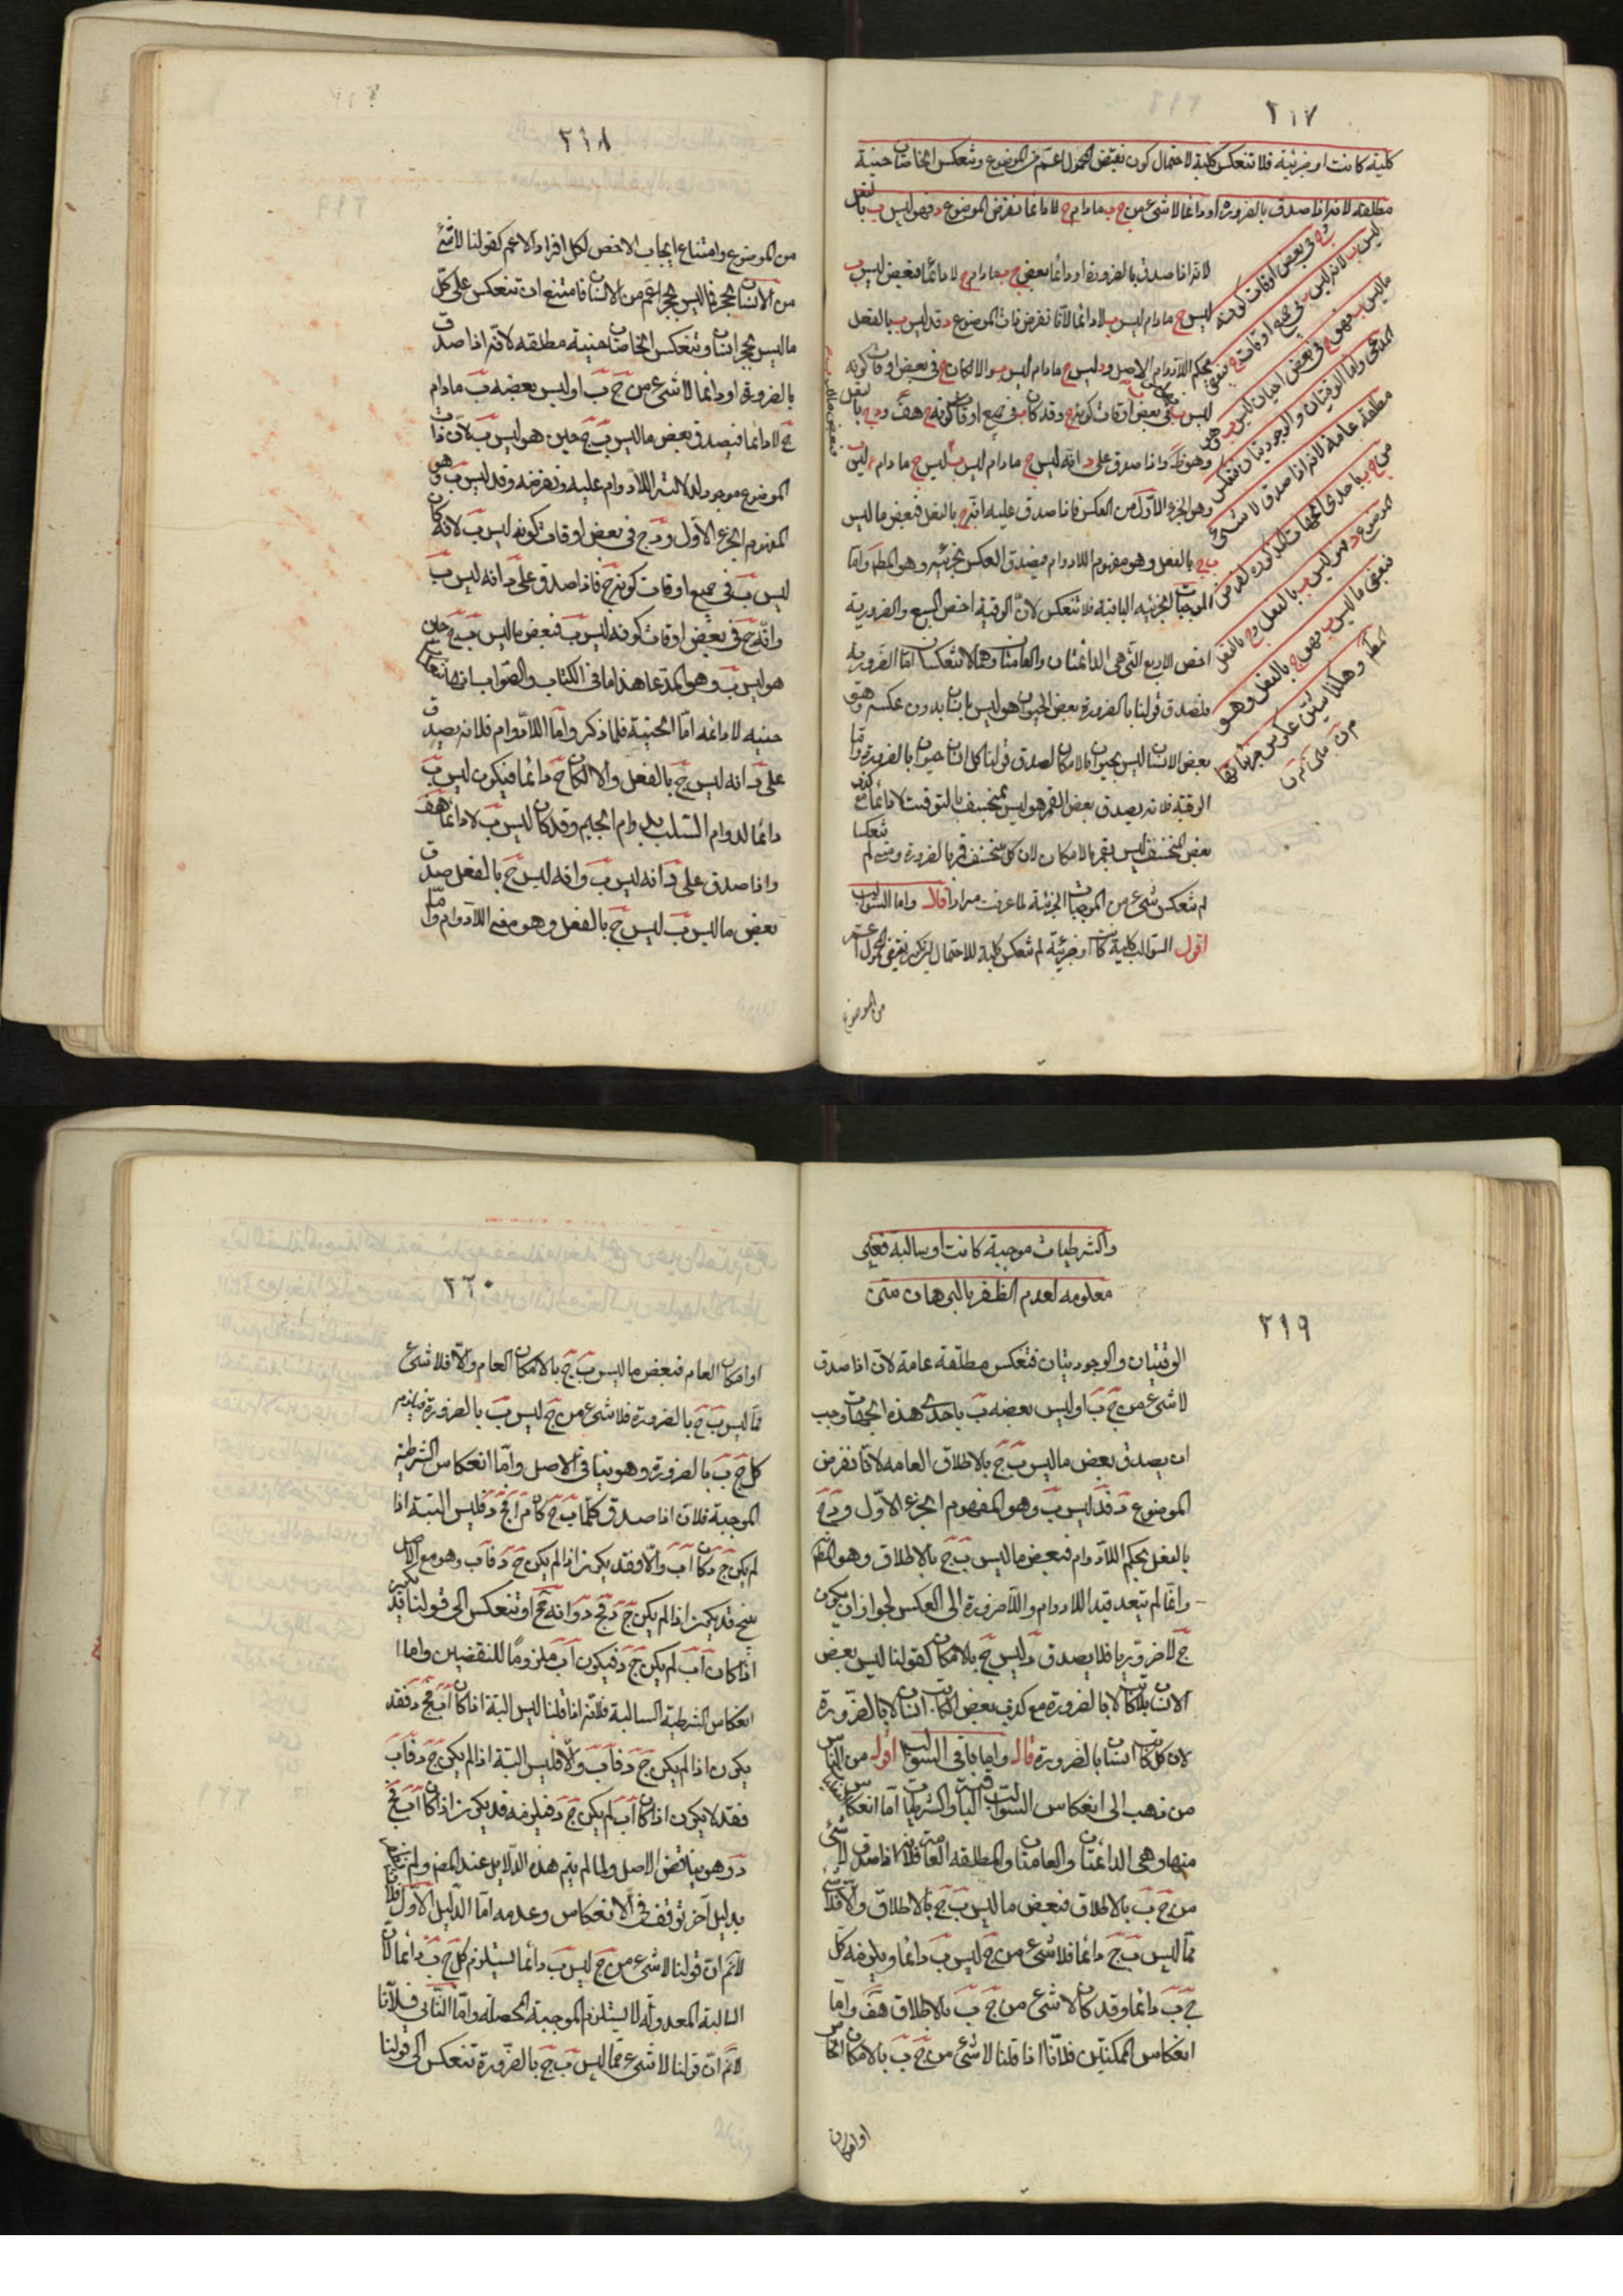 ٢١٧
كلية كانت او جزئية فلا تنعكس كلية لاحتمال كون نقيض المحمول اعم من الموضوع وتنعكس الخاصتان حينية
مطلقة لانه اذا صدق بالضرورة او دائما لا شئ من ج ب ما دام ج لا دائما نفرض الموضوع د فهو ليس ب بالفعل
وج في بعض اوقات كونه
ليس ب لانه ليس ب في جميع اوقات ج فبعض
ما ليس ب فهو ج في بعض احيان ليس ب وهو
المدعى واما الوقتيتان والوجوديتان فتنعكس
مطلقة عامة لانه اذا صدق لا شئ
من ج ب باحدى الجهات المذكورة نفرض
الموضوع د فهو ليس ب بالفعل وج بالفعل
فبعض ما ليس ب فهو ج بالفعل وهو
المط وهكذا نبين عكوس جزئياتها
لانه اذا صدق بالضرورة او دائما بعض ج ب ما دام ج لا دائما فبعض ليس ب
ليس ج ما دام ليس ب لا دائما لانا نفرض ذات الموضوع د فد ليس ب بالفعل
بحكم اللادوام الاصل ود ليس ج ما دام ليس ب والا لكان ج في بعض اوقات كونه
ليس ب في بعض اوقات كونه ج وقد كان ب في جميع اوقات كونه ج هف ود ج بالفعل
وهو ظ واذا صدق على د انه ليس ج ما دام ليس ب ليس ج ما دام ليس
وهو الجزء الاول من العكس فاذا صدق عليه انه ج بالفعل فبعض ما ليس
ب ج بالفعل وهو مفهوم اللادوام فيصدق العكس بجزئيه وهو المط واما
الموجبات الجزئية الباقية فلا تنعكس لان الوقتية اخص السبع والضرورية
اخص الاربع التي هي الدائمتان والعامتان وهما لا تنعكسان اما الضرورية
فلصدق قولنا بالضرورة بعض الحيوان هو ليس بانسان بدون عكسه وهو
بعض الانسان ليس بحيوان بالامكان لصدق قولنا كل انسان حيوان بالضرورة واما
الوقتية فلانه يصدق بعض القمر هو ليس بمنخسف بالتوقيت لا دائما مع كذب
بعض المنخسف ليس بقمر بالامكان لان كل منخسف قمر بالضرورة ومتى لم تنعكسا
لم تنعكس شئ من الموجبات الجزئية لما عرفت مرارا قال واما السوالب
اقول السوالب كلية كانت او جزئية لم تنعكس كلية للاحتمال ان يكون نقيض المحمول اعم
من الموضوع
٢١٨
من الموضوع وامتناع ايجاب الاخص لكل افراد الاعم كقولنا لا شئ
من الانسان بحجر فما ليس بحجر اعم من الانسان فامتنع ان تنعكس على كل
ما ليس بحجر انسان وتنعكس الخاصتان حينية مطلقة لانه اذا صدق
بالضرورة او دائما لا شئ من ج ب او ليس بعضه ب ما دام
ج لا دائما فيصدق بعض ما ليس ب ج حين هو ليس ب لان ذات
الموضوع موجود لدلالة اللادوام عليه ونفرضه د فد ليس ب وهو
المفهوم الجزء الاول ود ج في بعض اوقات كونه ليس ب لانه كان
ليس ب في جميع اوقات كونه ج فاذا صدق على د انه ليس ب
وانه ج في بعض اوقات كونه ليس ب فبعض ما ليس ب ج حين
هو ليس ب وهو المدعا هذا ما في الكتاب والصواب انهما تنعكسان
حينية لا دائمة اما الحينية فلما ذكر واما اللادوام فلانه يصدق
على د انه ليس ج بالفعل والا لكان ج دائما فيكون ليس ب
دائما لدوام السلب بدوام الجيم وقد كان ليس ب لا دائما هف
واذا صدق على د انه ليس ب وانه ليس ج بالفعل صدق
بعض ما ليس ب ليس ج بالفعل وهو معنى اللادوام واما
والشرطيات موجبة كانت او سالبة فغير
معلومة لعدم الظفر بالبرهان متن
٢١٩
الوقتيتان والوجوديتان فتنعكس مطلقة عامة لان اذا صدق
لا شئ من ج ب او ليس بعضه ب باحدى هذه الجهات وجب
ان يصدق بعض ما ليس ب ج بالاطلاق العامه لانا نفرض
الموضوع د فد ليس ب وهو المفهوم الجزء الاول ود ج
بالفعل بحكم اللادوام فبعض ما ليس ب ج بالاطلاق وهو المط
وانما لم يتعد قيد اللادوام واللاضرورة الى العكس لجواز ان يكون
ج لا ضروريا فلا يصدق د ليس ج بالامكان كقولنا ليس بعض
الانسان بكاتب لا بالضرورة مع كذب بعض الكاتب انسان لا بالضرورة
لان كل كاتب انسان بالضرورة قال واما باقي السوالب اقول من الناس
من ذهب الى انعكاس السوالب الباقية والشرطيات اما انعكاس السوالب
منها وهي الدائمتان والعامتان والمطلقة العامة فلانه اذا صدق لا شئ
من ج ب بالاطلاق فبعض ما ليس ب ج بالاطلاق والا فلا شئ
مما ليس ب ج دائما فلا شئ من ج ليس ب دائما ويلزمه كل
ج ب دائما وقد كان لا شئ من ج ب بالاطلاق هف واما
انعكاس الممكنتين فلانا اذا قلنا لا شئ من ج ب بالامكان الخاص
او امكان
٢٢٠
او امكان العام فبعض ما ليس ب ج بالامكان العام والا فلا شئ
مما ليس ب ج بالضرورة فلا شئ من ج ليس ب بالضرورة فيلزم
كل ج ب بالضرورة وهو ينافي الاصل واما انعكاس الشرطية
الموجبة فلان اذا صدق كلما كان ا ب فج د فليس البتة اذا
لم يكن ج د كان ا ب والا فقد يكون اذا لم يكن ج د فا ب وهو مع الاصل
ينتج قد يكون اذا لم يكن ج د فج د وانه مح او تنعكس الى قولنا قد يكون
اذا كان ا ب لم يكن ج د فيكون ا ب ملزوما للنقيضين واما
انعكاس الشرطية السالبة فلانه اذا قلنا ليس البتة اذا كان ا ب فج د فقد
يكون اذا لم يكن ج د فا ب والا فليس البتة اذا لم يكن ج د فا ب
فقد لا يكون اذا كان ا ب لم يكن ج د فيلزمه قد يكون اذا كان ا ب فج
د وهو يناقض الاصل ولما لم يتم هذه الدلايل عند المص ولم يظفر
بدليل آخر توقف في الانعكاس وعدمه اما الدليل الاول فلانا
لا نم ان قولنا لا شئ من ج ليس ب دائما يستلزم كل ج ب دائما لان
السالبة المعدولة لا يستلزم الموجبة المحصلة واما الثاني فلانا
لا نم ان قولنا لا شئ مما ليس ب ج بالضرورة تنعكس الى قولنا